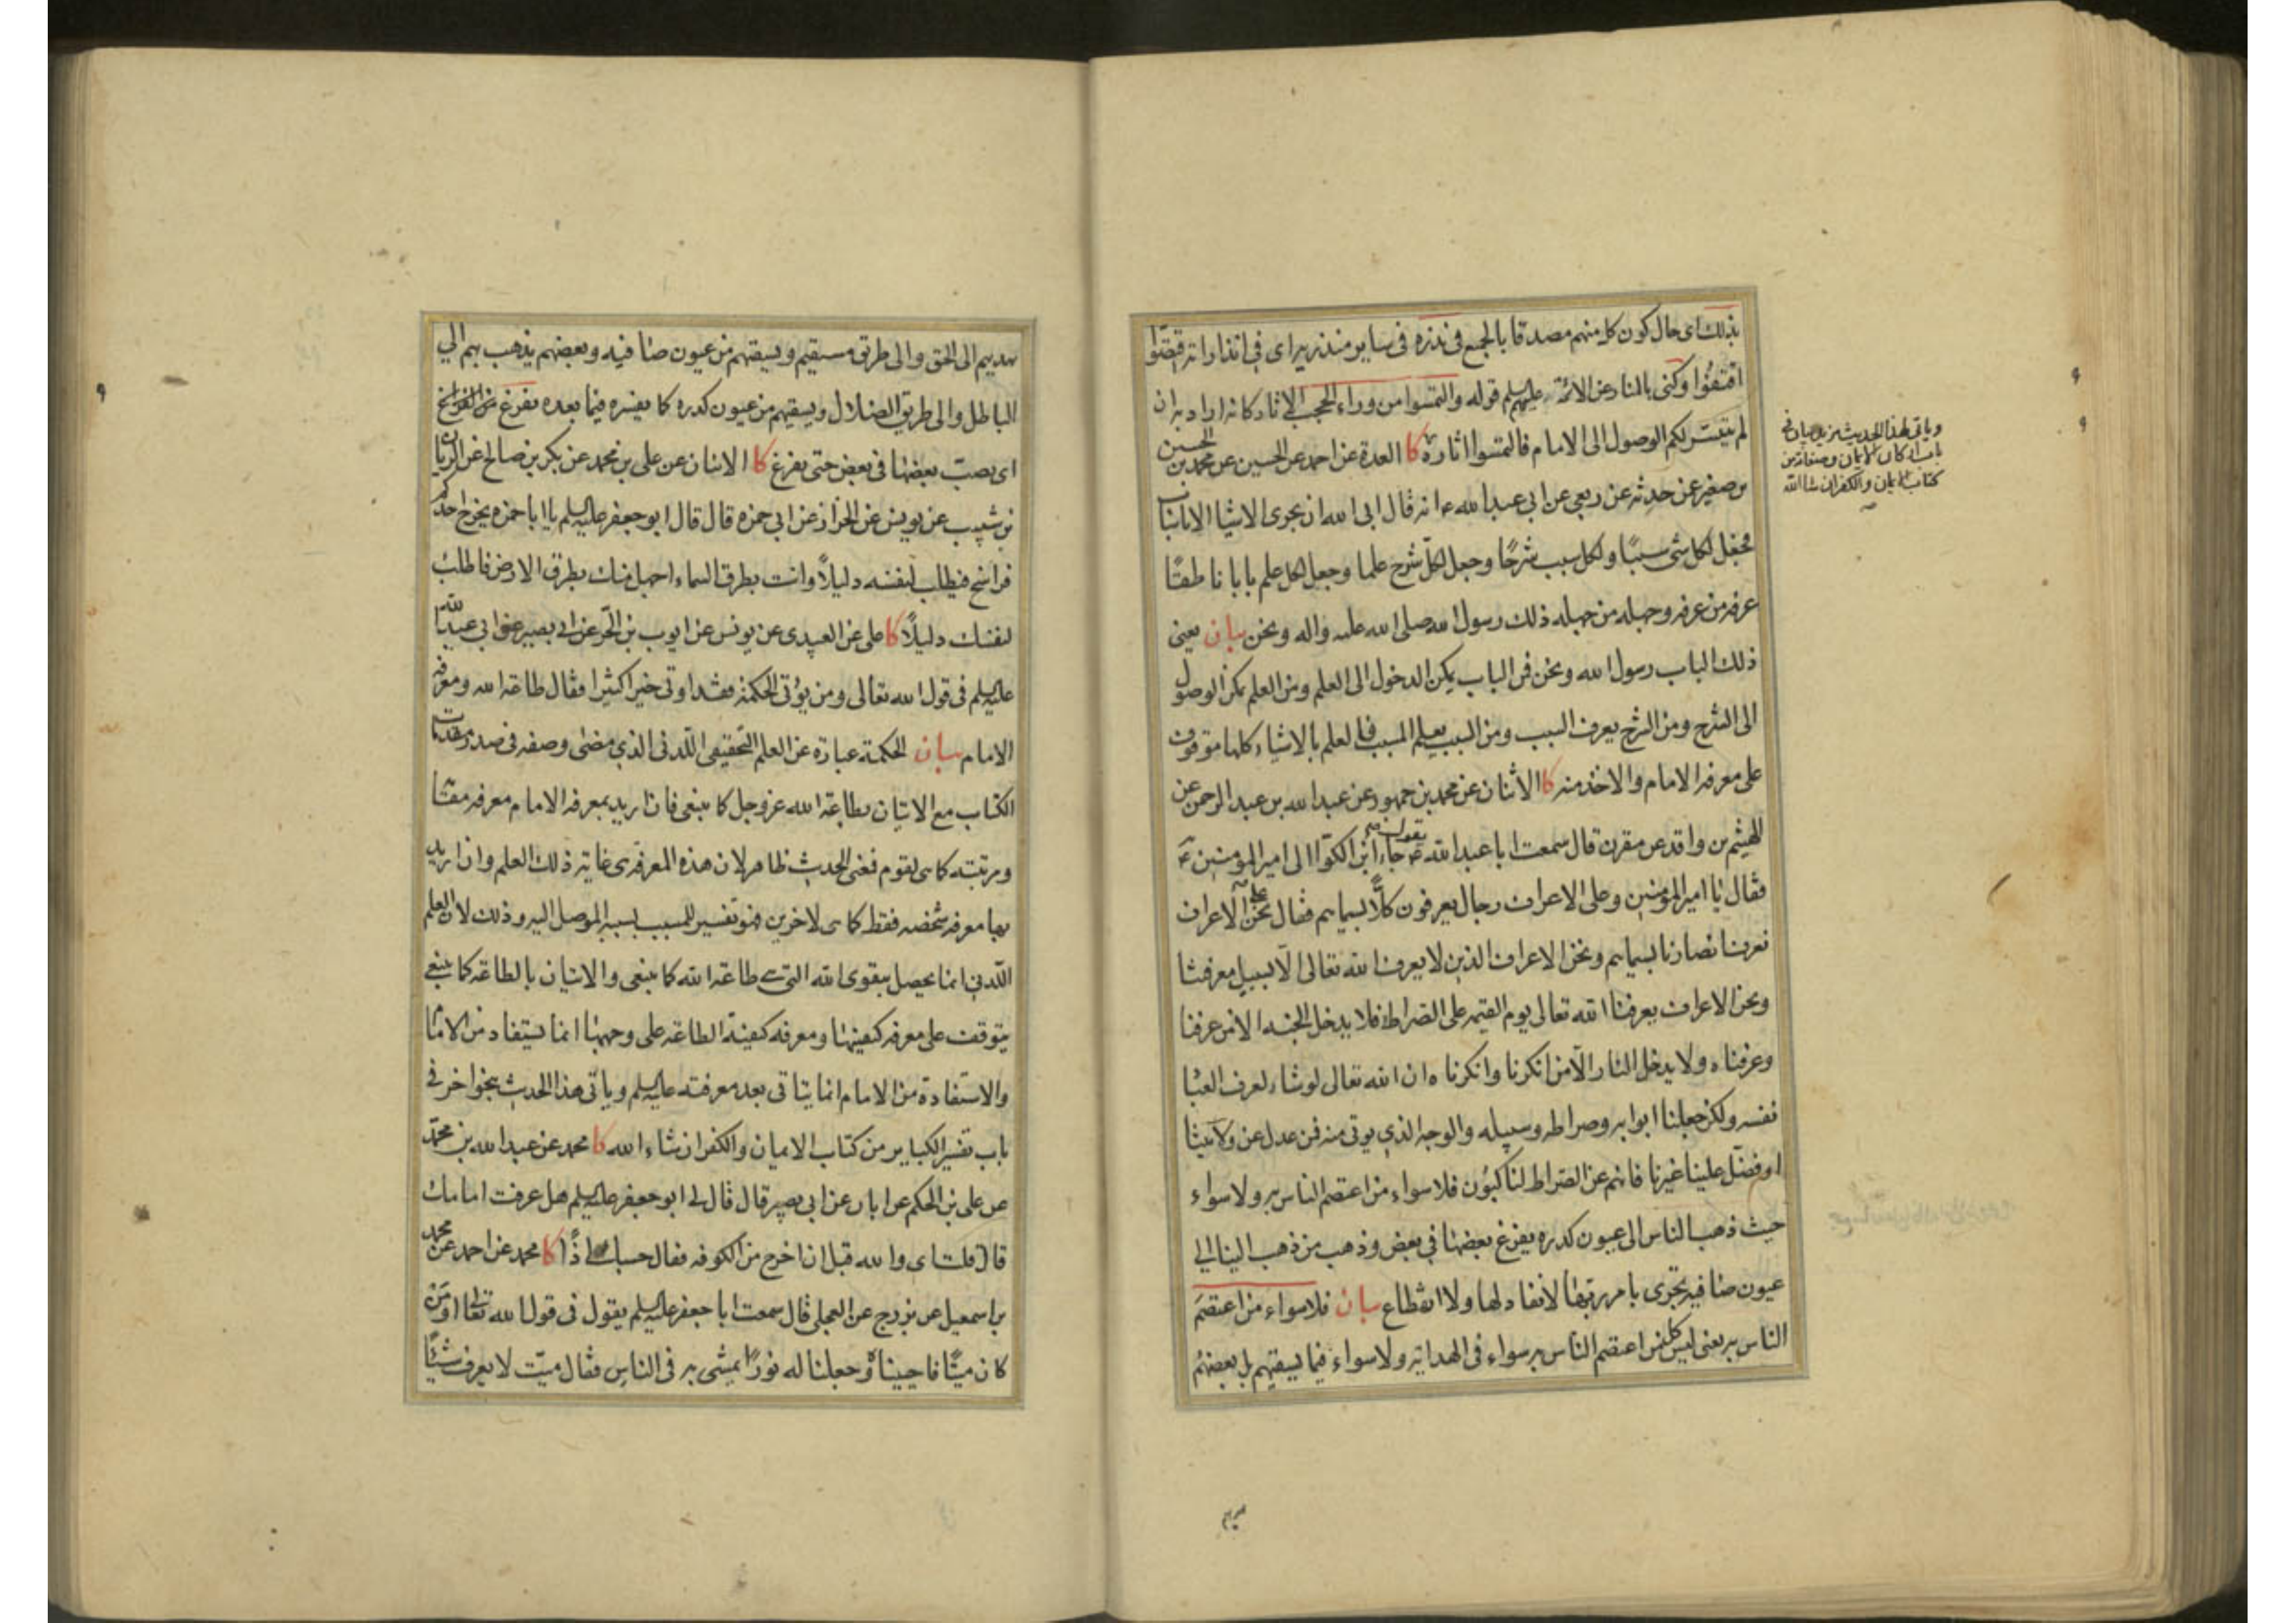 بذلك اى حال كون كل منهم مصدقا بالجميع فى نذره فى ساير منذريه اى فى انذاراته اقتصّوا
اقتفوا وكنى بالمنار عن الائمة عليهم السلم قوله والتمسوا من وراء الحجب الاثار كانه اراد به ان
لم يتيسّر لكم الوصول الى الامام فالتمسوا اثاره كا العدة عن احمد عن الحسين عن محمد بن الحسين
بن صغير عن حدثه عن ربعى عن ابى عبد الله ع انه قال ابى الله ان يجرى الاشيا الا باسباب
فجعل لكل شى سببًا ولكل سبب شرحًا وجعل لكلّ شرح علما وجعل لكل علم بابا ناطقًا
عرفه من عرفه وجهله من جهله ذلك رسول الله صلى الله عليه واله ونحن بيان يعنى
ذلك الباب رسول الله ونحن فمن الباب يمكن الدخول الى العلم ومن العلم يمكن الوصول
الى الشرح ومن الشرح يعرف السبب ومن السبب يعلم المسبب فالعلم بالاشياء كلها موقوف
على معرفه الامام والاخذ منه كا الاثنان عن محمد بن جمهور عن عبد الله بن عبد الرحمن عن
الهيثم بن واقد عن مقرن قال سمعت ابا عبد الله ع يقول جاء ابن الكوّا الى امير المؤمنين ع
فقال يا امير المؤمنين وعلى الاعراف رجال يعرفون كلًّا بسيماهم فقال نحن على الاعراف
نعرف انصارنا بسيماهم ونحن الاعراف الذين لا يعرف الله تعالى الّا بسبيل معرفتنا
ونحن الاعراف يعرفنا الله تعالى يوم القيمه على الصراط فلا يدخل الجنه الا من عرفنا
وعرفناه ولا يدخل النار الّا من انكرنا وانكرناه ان الله تعالى لو شاء لعرف العباد
نفسه ولكن جعلنا ابوابه وصراطه وسبيله والوجه الذى يوتى منه فمن عدل عن ولايتنا
او فضّل علينا غيرنا فانهم عن الصراط لناكبون فلا سواء من اعتصم الناس به ولا سواء
حيث ذهب الناس الى عيون كدره يفرغ بعضها فى بعض وذهب من ذهب الينا الى
عيون صافيه تجرى بامر ربها لا نفاد لها ولا انقطاع بيان فلا سواء من اعتصم
الناس به يعنى ليس كل من اعتصم الناس به سواء فى الهدايه ولا سواء فيما يسقيهم بل بعضهم
وياتى هذا الحديث مزيد بيان فى
باب اركان الايمان وصفاته من
كتاب الايمان والكفر ان شا الله
يهديهم الى الحق والى طريق مستقيم ويسقيهم من عيون صافيه وبعضهم يذهب بهم الى
الباطل والى طريق الضلال ويسقيهم من عيون كدره كما يفسره فيما بعده يفرغ من الافراغ
اى يصبّ بعضها فى بعض حتى يفرغ كا الاثنان عن على بن محمد عن بكر بن صالح عن الريان
بن شبيب عن يونس عن الخزاز عن ابى حمزه قال قال ابو جعفر عليه السلم يا ابا حمزه يخرج احدكم
فراسخ فيطلب لنفسه دليلًا وانت بطرق السماء اجهل منك بطرق الارض فاطلب
لنفسك دليلًا كا على عن العبيدى عن يونس عن ايوب بن الحّر عن ابى بصير عن ابى عبد الله
عليه السلم فى قول الله تعالى ومن يؤتى الحكمة فقد اوتى خيرا كثيرا فقال طاعة الله ومعرفه
الامام بيان الحكمة عبارة عن العلم التحقيقى اللّدنى الذى مضى وصفه فى صدر مقدمات
الكتاب مع الاتيان بطاعة الله عز وجل كما ينبغى فان اريد بمعرفه الامام معرفه مقامه
ومرتبته كما هى لقوم فمعنى الحديث ظاهر لان هذه المعرفه هى غاية ذلك العلم وان اريد
بها معرفه شخصه فقط كما هى لاخرين فهو تفسير للمسبب بسببه الموصل اليه وذلك لان العلم
اللّدنى انما يحصل بتقوى الله التى هى طاعة الله كما ينبغى والاتيان بالطاعه كما ينبغى
يتوقف على معرفه كيفيتها ومعرفه كيفية الطاعه على وجهها انما يستفاد من الامام
والاستفادة من الامام انما يتاتى بعد معرفته عليه السلم وياتى هذا الحديث بنحو اخر فى
باب تفسير الكباير من كتاب الايمان والكفر ان شاء الله كا محمد عن عبد الله بن محمّد
عن على بن الحكم عن ابان عن ابى بصير قال قال لى ابو جعفر عليه السلم هل عرفت امامك
قال قلت اى والله قبل ان اخرج من الكوفه فقال حسبك اذًا كا محمد عن احمد عن محمد
بن اسمعيل عن بزرج عن العجلى قال سمعت ابا جعفر عليه السلم يقول فى قول الله تعالى اومن
كان ميتًا فاحييناه وجعلنا له نورًا يمشى به فى الناس فقال ميّت لا يعرف شيئًا